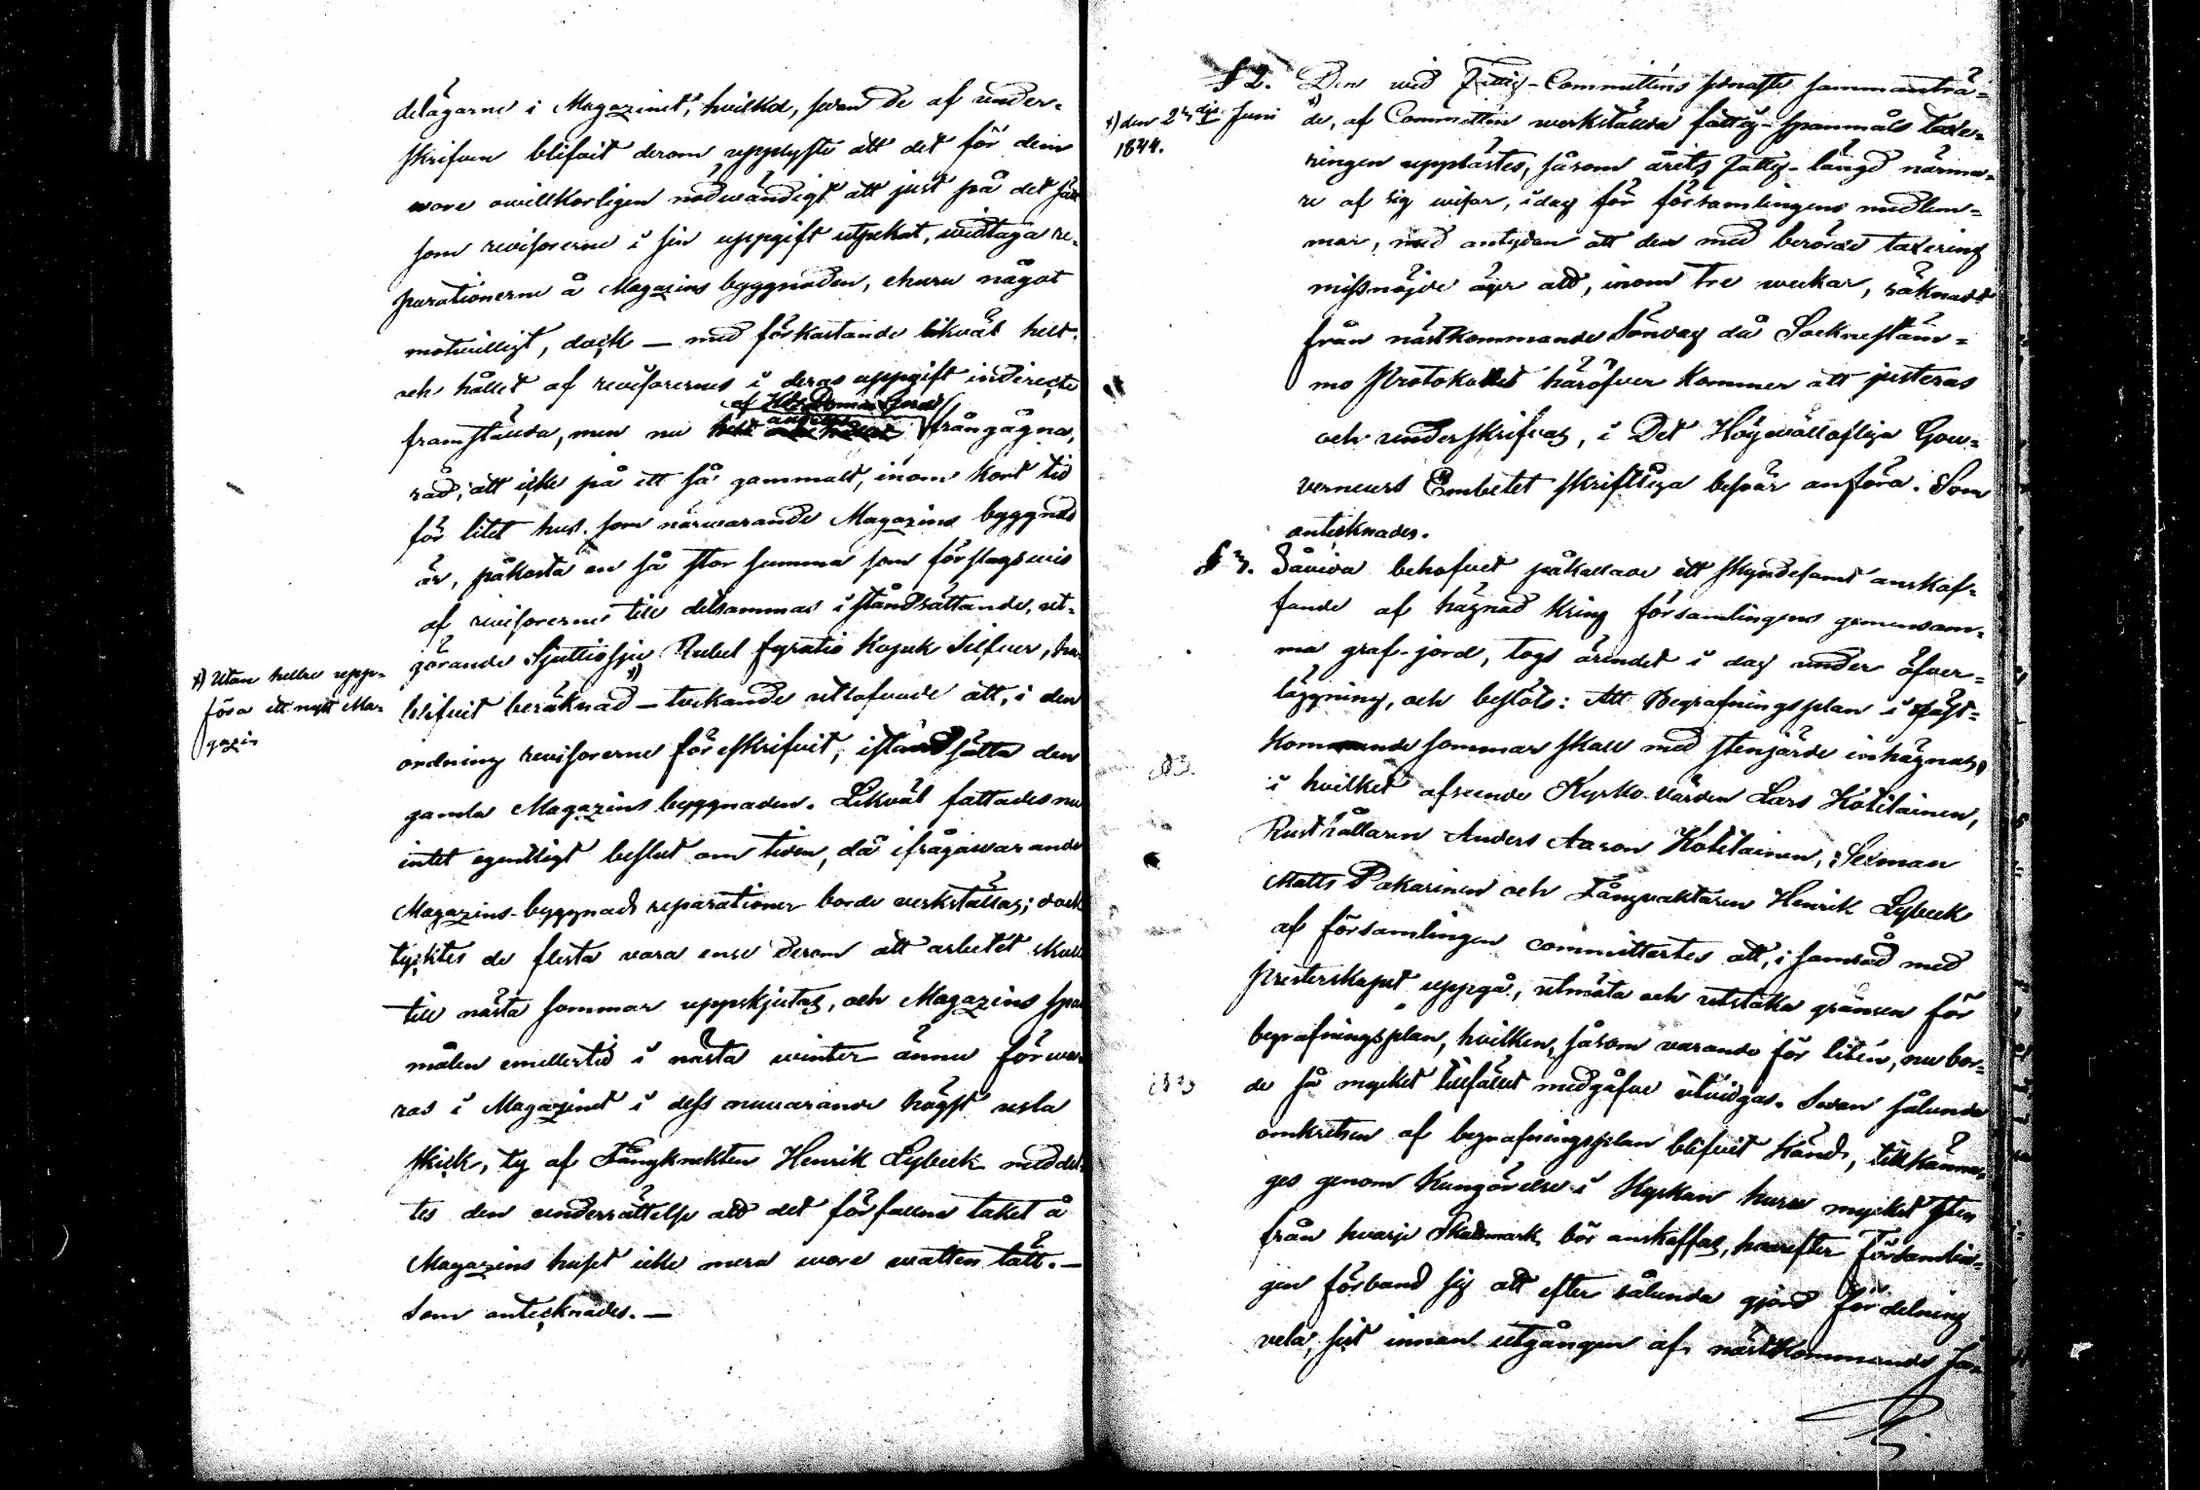 delägarne i Magazinet, hvilka, sedan de af under-
skrifven blifvit derom upplyste att det för dem
wore owillkorligen nödwändigt att just på det sätt
som revisorerne i sin uppgift utpekat, widtaga re-
parationerne å Magazins byggnaden, ehuru något
motwilligt, dock — med förkastande likväl helt
och hållet af revisorernes i deras uppgift indirecte
framstälda, men nu frångågna,
råd, att icke på ett så gammalt, inom kort tid
för litet hus, som närwarande Magazins byggnad
är, påkosta en så stor summa som förslagswis
af revisorerne till detsammas iståndsättande, ut-
görande Sjuttiosju Rubel fyratio Kopek Silfver, ha
blifvit beräknad x) — tockande utlofvade att, i den
x) Utan hellre upp-
föra ett nytt Ma-
gazin
ordning revisorerne föreskrifvit, iståndsätta den
gamla Magazins byggnaden. Likväl fattades nu
intet egentligt beslut om tiden, då ifrågawarande
Magazins-byggnads reparationer borde verkställas; dock
tycktes de flesta vara ense derom att arbetet skulle
till nästa sommar uppskjutas, och Magazins span
målen emellertid i nästa winter ännu förwa
ras i Magazinet i dess nuwarande högst usla
skick, ty af Fångknekten Henrik Lybeck meddel
tes den underrättelse att det förfallna taket å
Magazins huset icke mera wore watten tätt. —
Som antecknades. —
§ 2. Den wid Fattig-Committéns senaste sammanträ-
x) den 2dra dje Juni
1844.
de, x) af Committén werkstälda fattig-spanmåls taxe-
ringen upplästes, såsom årets Fattig-längd närma-
re af sig wisar, i dag för församlingens medlem-
mar, med antydan att den med berörde taxering
missnöjde äger att, inom tre weckor, räknadt
från nästkommande Söndag då Sockneställm-
mo Protokollet häröfver kommer att justeras
och underskrifvas, i Det Högwällofliga Gou-
verneurs Embetet skriftliga beswär anföra. Som
antecknades.
§ 3. Såwida behofvet påkallade ett skyndesamt anskaf-
fande af hägnad kring församlingens gemensam-
ma graf-jord, togs ärendet i dag under öfver-
läggning, och beslöts: Att Begrafningsplan i näst-
kommande sommar skall med stengärde inhägnas,
i hvilket afseende Kyrko-värden Lars Kotilainen,
Rusthållaren Anders Aaron Kotilainen, Sexman
Matts Pakarinen och Fångvaktaren Henrik Lybeck
af församlingen committertes att, i samråd med
presterskapet uppgå, utmäta och utstaka gränsen för
begrafningsplan, hvilken, såsom varande för liten, nu bor-
de så mycket tillfället medgåfve utvidgas. Sedan sålunda
omkretsen af begrafningsplan blifvit känd, tillkänna-
ges genom kungörelse i Kyrkan huru mycket sten
från hvarje Skattmark bör anskaffas, hwarefter Församlin-
gen förband sig att efter sålunda gjord fördelning
vela, sist innan utgången af nästkommande Ja-